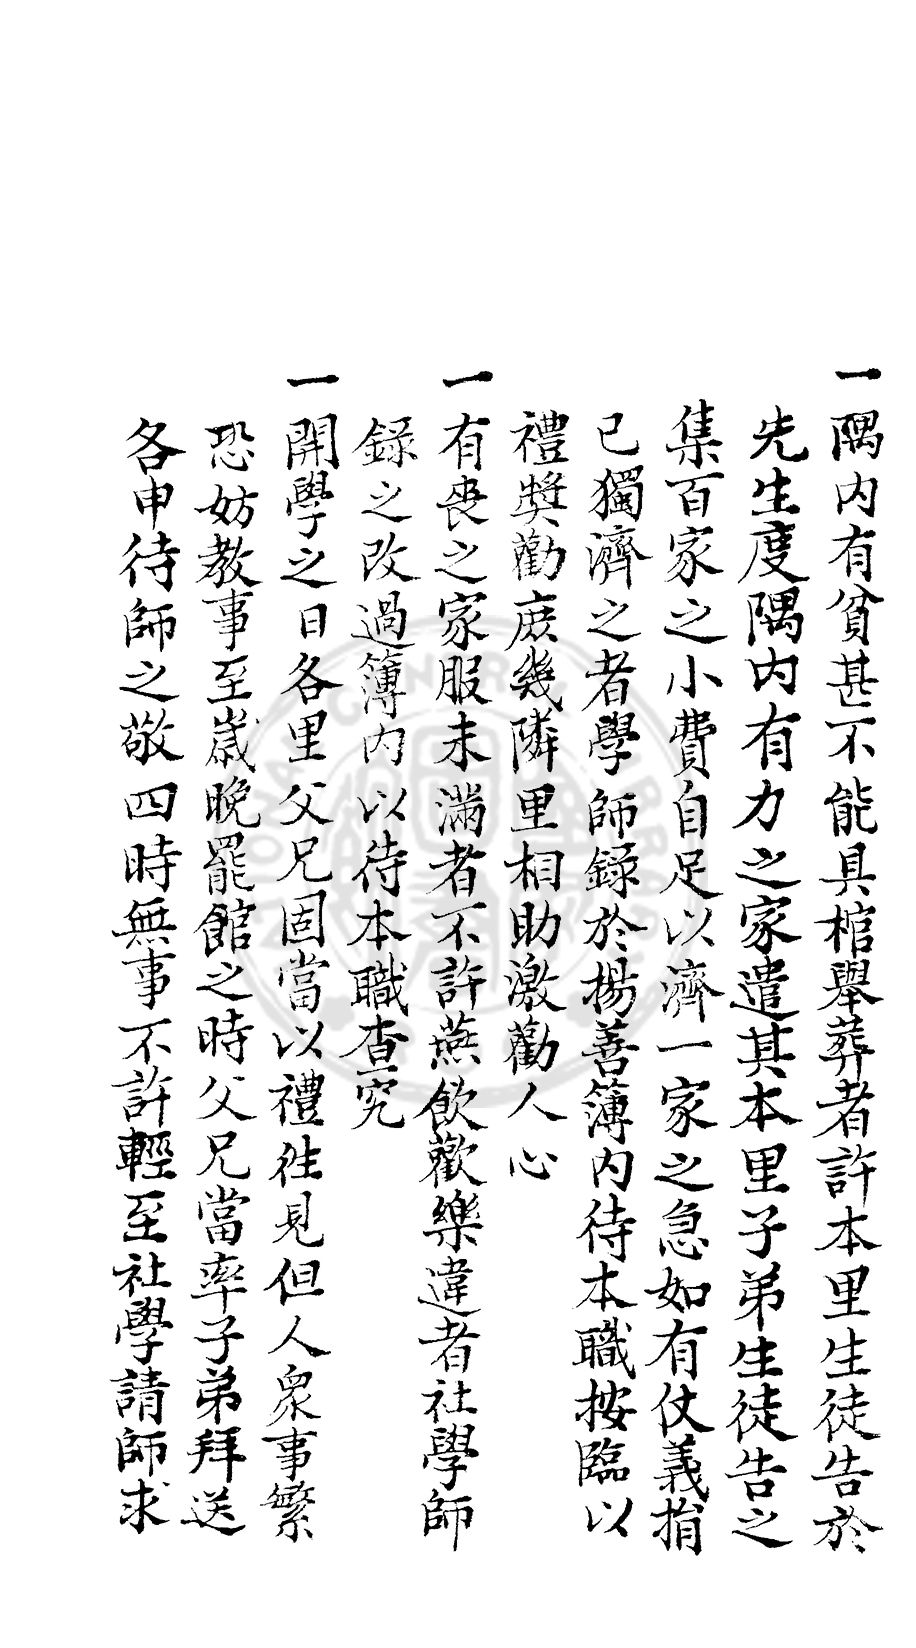 一隅内有貧甚不能具棺舉葬者許本里生徒告於
先生度隅内有力之家遣其本里子弟生徒告之
集百家之小費自足以濟一家之急如有仗義捐
已獨濟之者學師錄於揚善簿内待本職按臨以
禮獎勸庶幾隣里相助激勸人心
一有喪之家服未滿者不許燕飲歡樂違者社學師
錄之改過簿内以待本職查究
一開學之日各里父兄固當以禮徃見但人衆事繁
恐妨教事至嵗晚罷館之時父兄當率子弟拜送
各申待師之敬四時無事不許輕至社學請師求